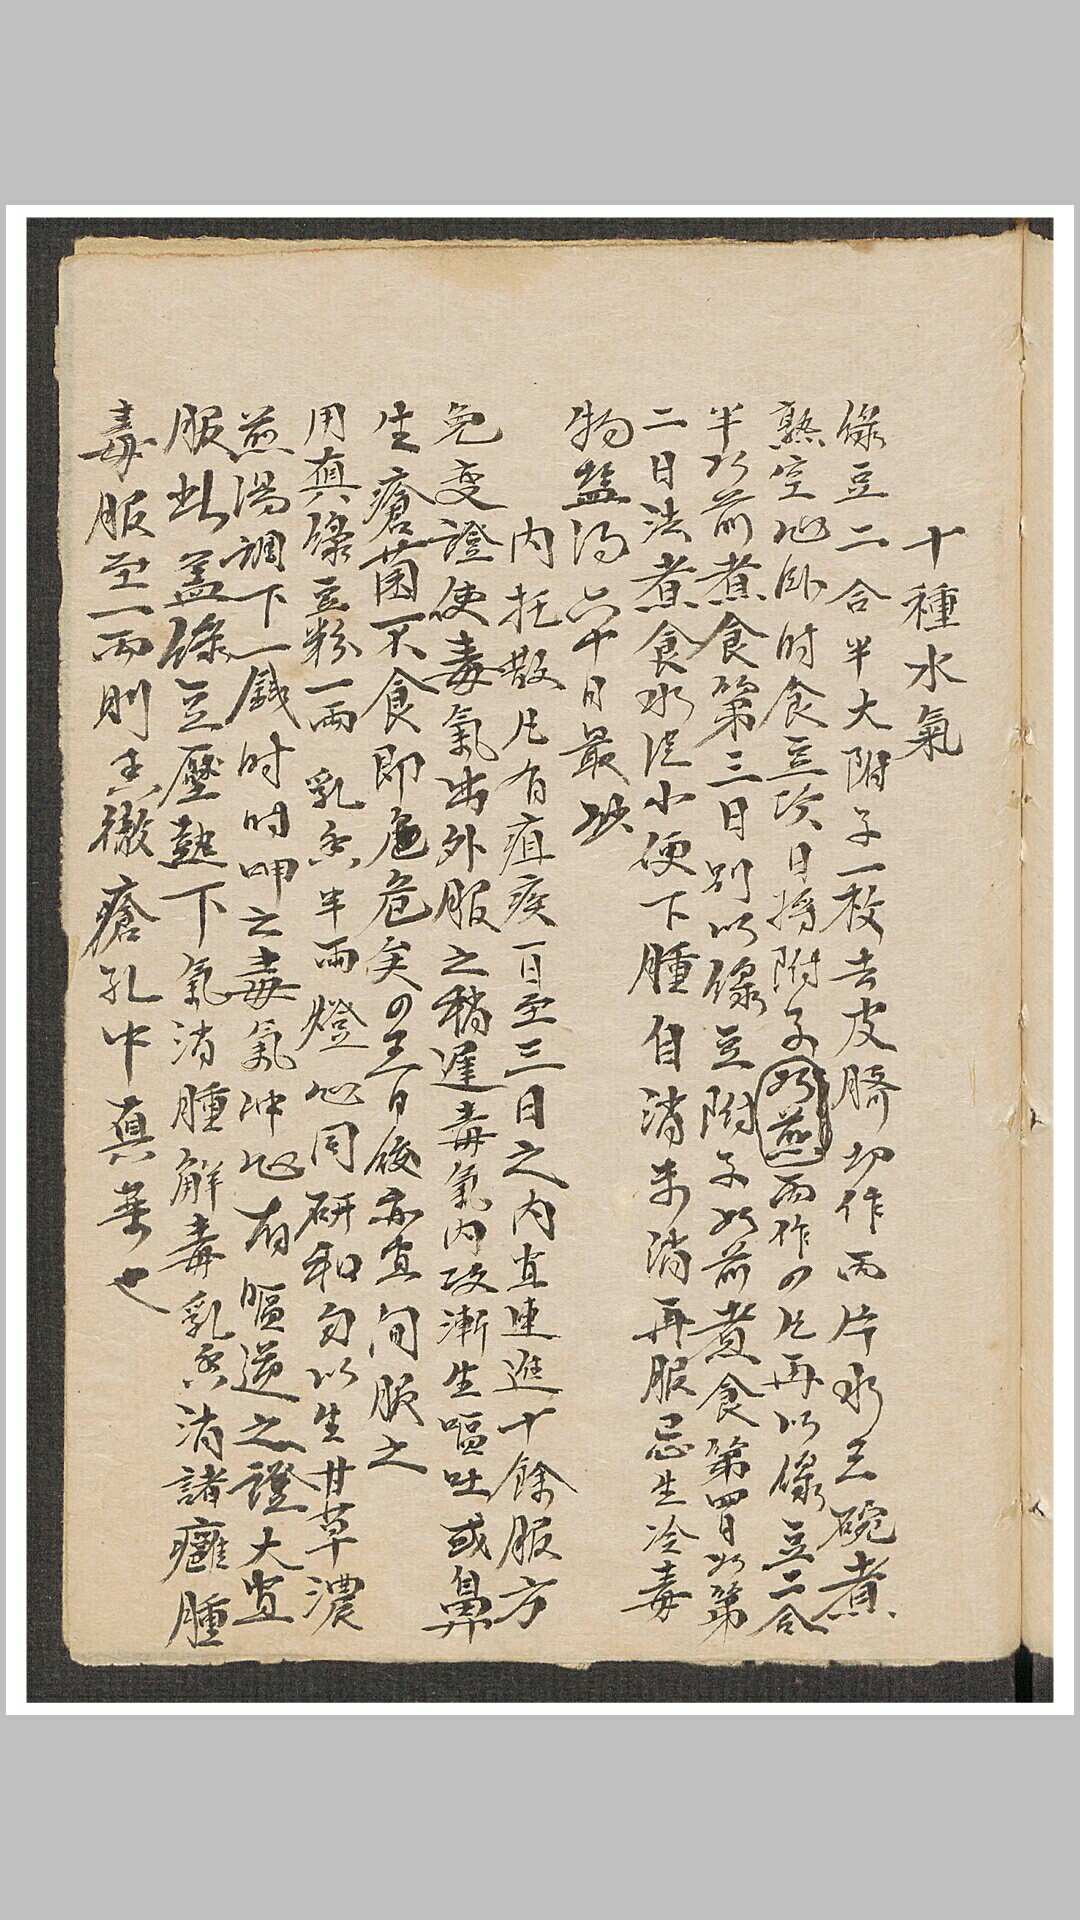 十種水氣
綠豆二合半大附子一枚去皮臍切作兩片水三碗煮
熟空心臥時食豆次日將附子兩作四片再以綠豆二合
半如前煮食第三日別以綠豆附子如前煮食第四日如第
二日法煮食水從小便下腫自消未消再服忌生冷毒
物盐酒六十日最妙
內托散凡有疽疾一日至三日之內宜連進十餘服方
免变證使毒氣出外服之稍遲毒氣內攻漸生嘔吐或鼻
生瘡菌不食即危危矣四五日後亦宜间服之
用真綠豆粉一兩乳香半兩燈心同研和匀以生甘草濃
煎湯調下一錢时时呷之毒氣冲心有嘔逆之證大宜
服此盖綠豆壓熱下氣消腫解毒乳香消諸癰腫
毒服至一兩則香徹瘡孔中真藥也